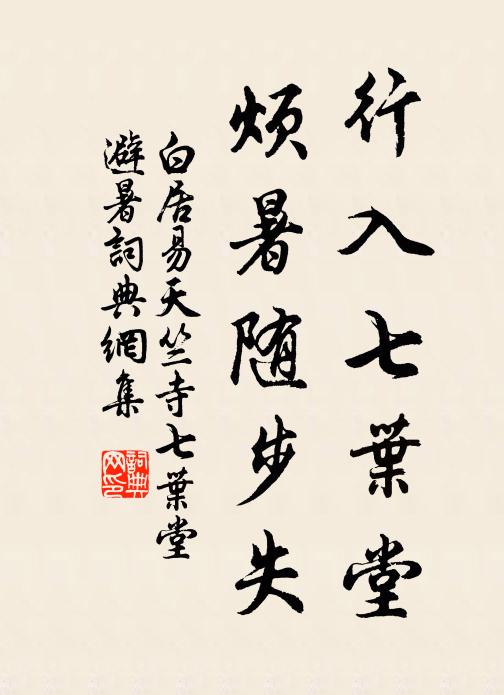 行入七葉堂
煩暑随步失
白居易天竺寺七葉堂
避暑詞典網集
詞典
网印